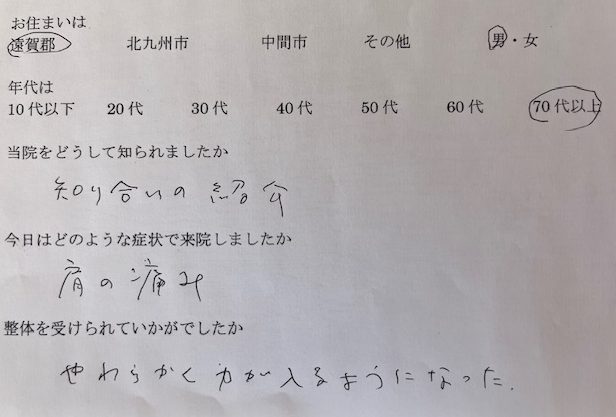 お住まいは
遠賀郡 北九州市 中間市 その他 男・女
年代は
10代以下 20代 30代 40代 50代 60代 70代以上
当院をどうして知られましたか
知り合いの紹介
今日はどのような症状で来院しましたか
肩の痛み
整体を受けられていかがでしたか
やわらかく力が入るようになった.